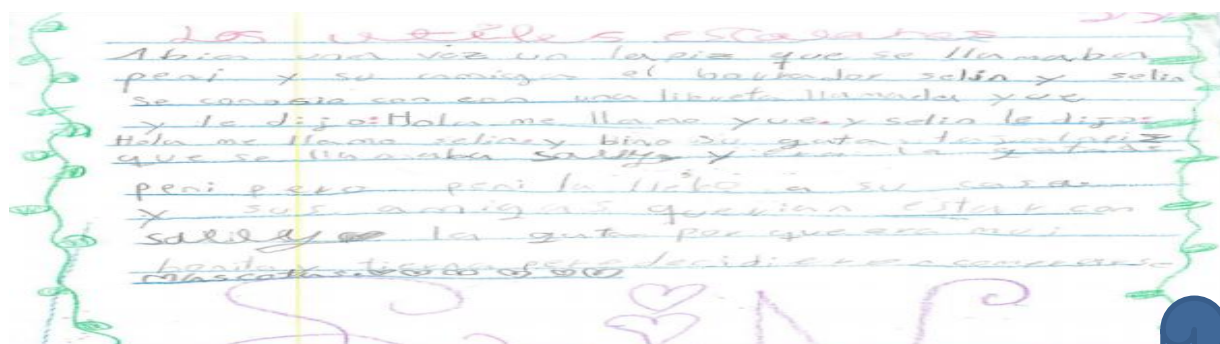 Los utíles escolares
Abia una vez un lapiz que se llamaba
peni y su amiga el borrador selin y selin
se conosio con con una libreta llamada yue
y le dijo: Hola me llamo yue. y selin le dijo:
Hola me llamo selin y bino su gata
que se llamaba sailly y era la gata de
peni pero peni la llebo a su casa
y sus amigas querian estar con
salily la gata porque era mui
bonita y tierna decidieron comprarse
mascotas.
FiN